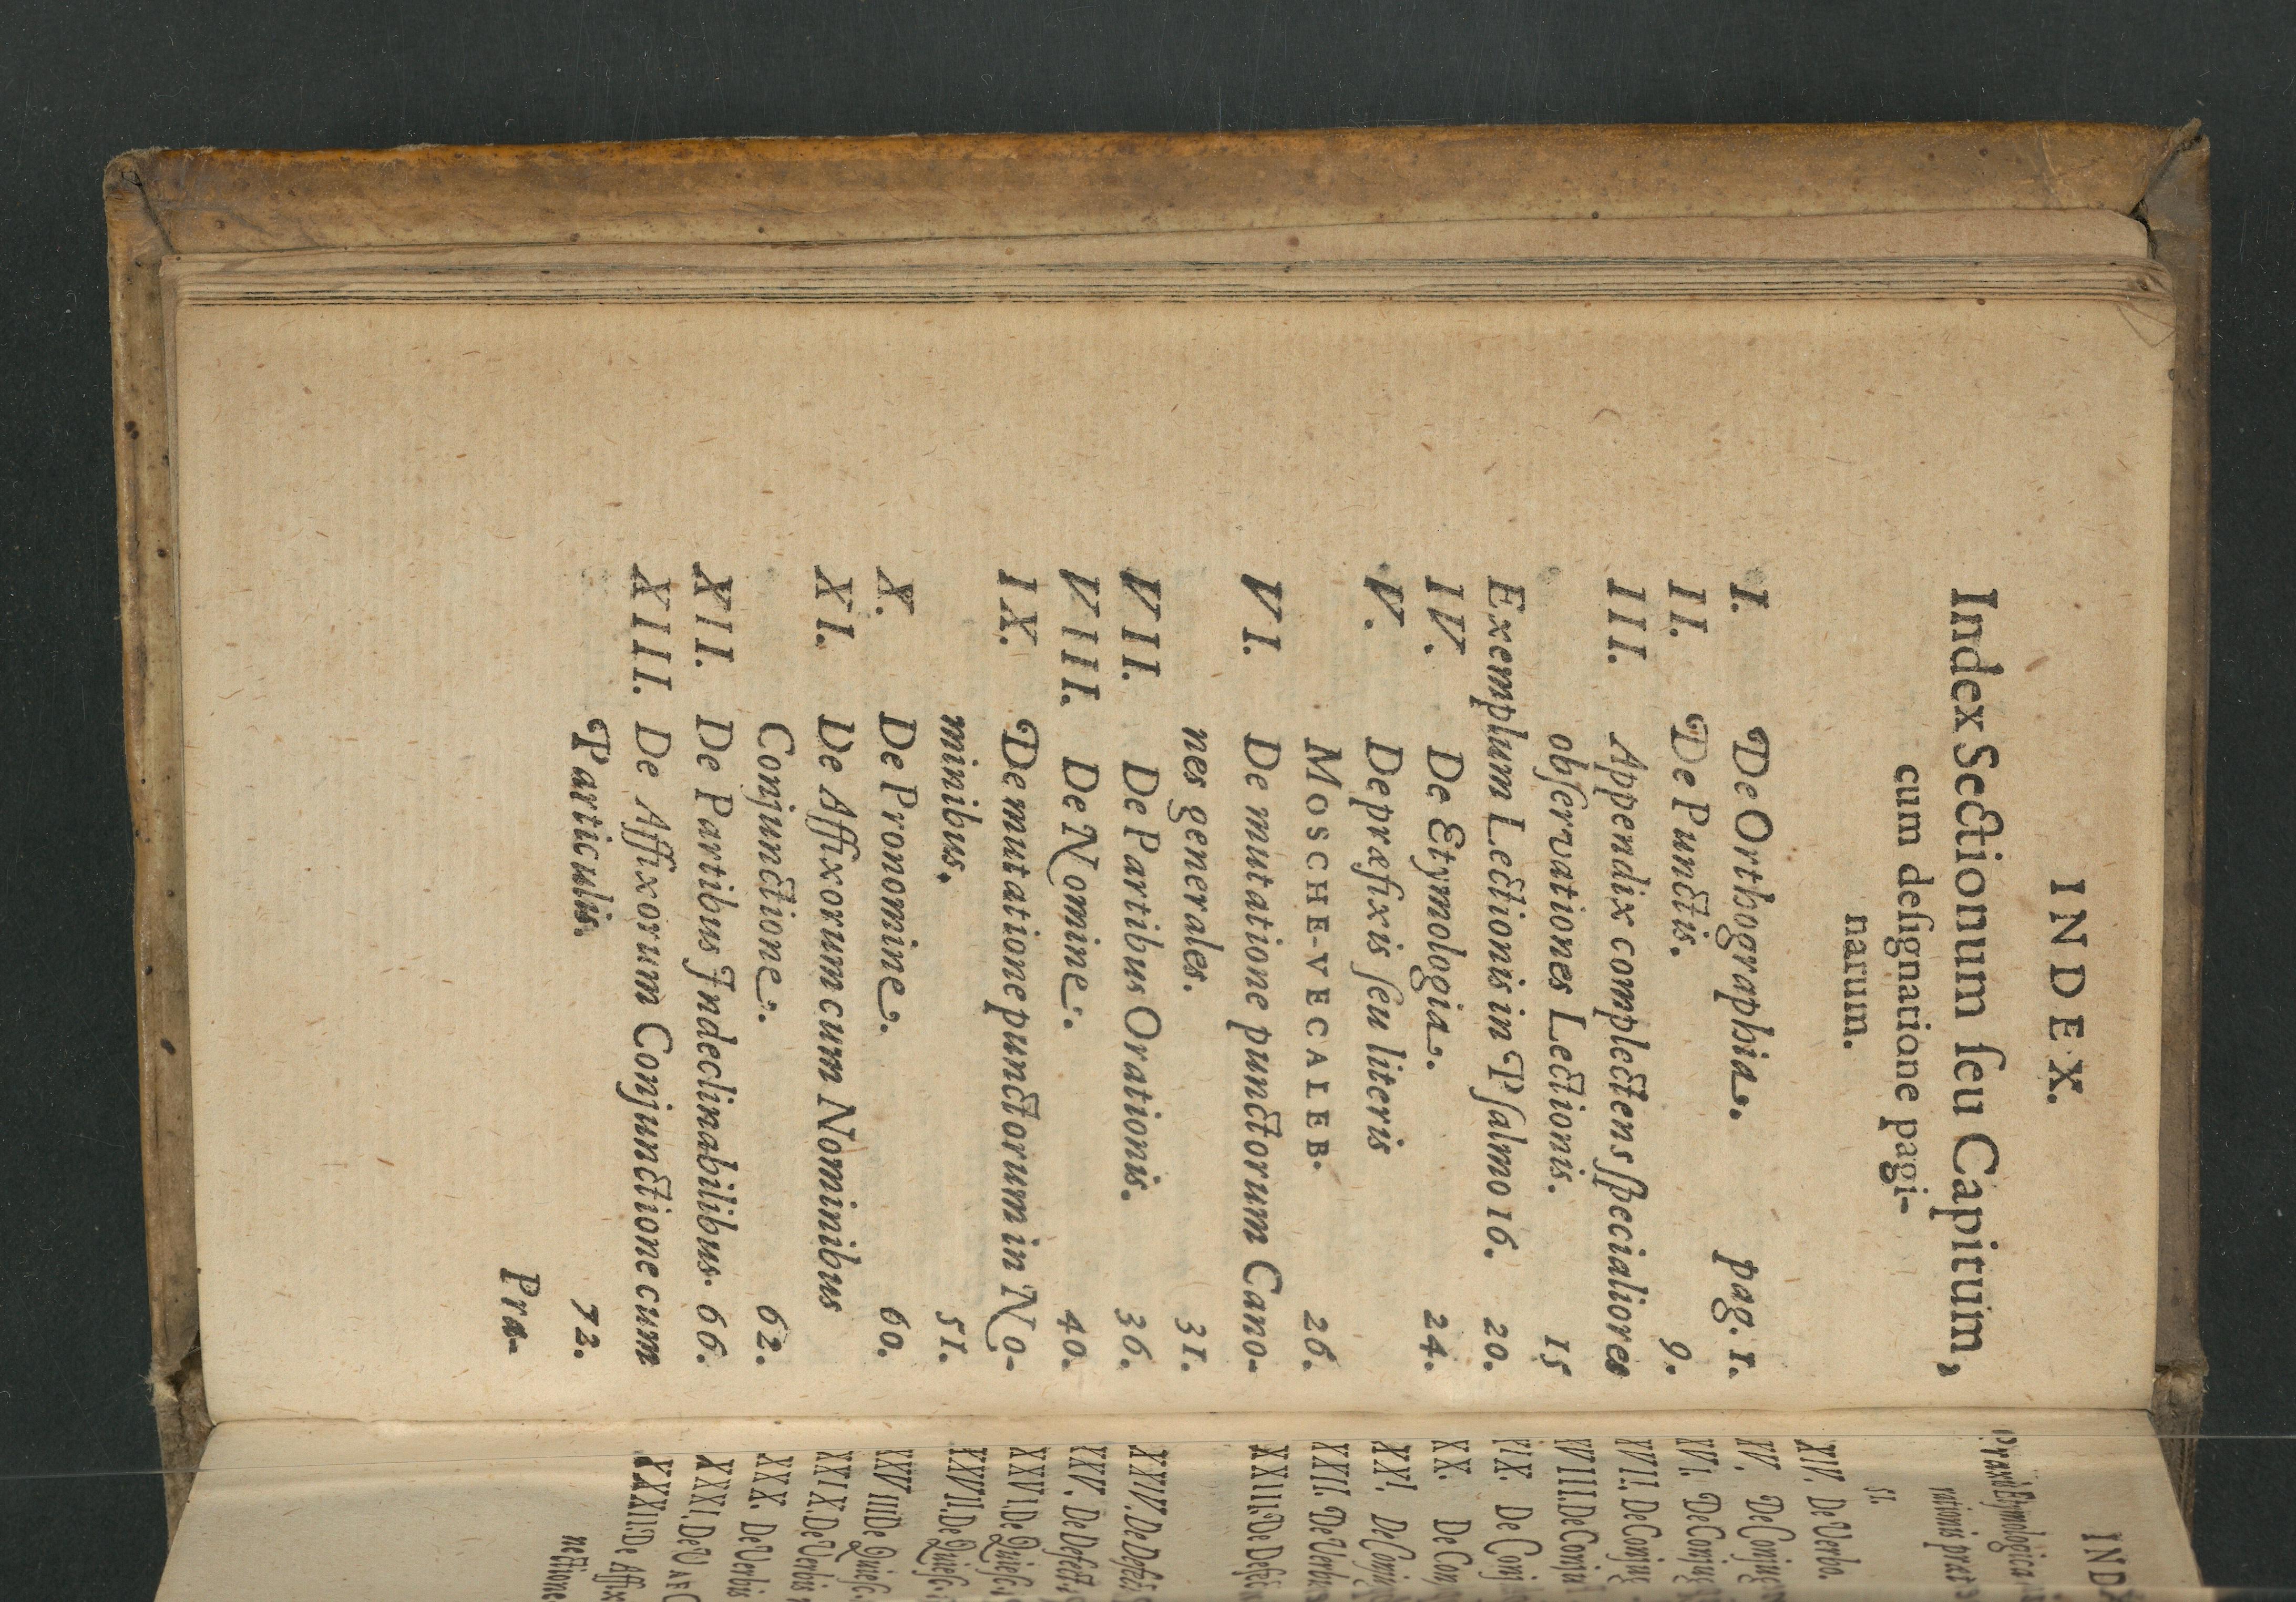 INDEX.
Index Sectionum ſeu Capitum,
cum deſignatione pagi-
narum.
I. De Orthographia. pag. 1.
II. De Punctis. 9.
III. Appendix complectens ſpecialiores
obſervationes Lectionis. 15
Exemplum Lectionis in Pſalmo 16. 20.
IV. De Etymologia. 24.
V. De præfixis ſeu literis
MOSCHE-VECALEB. 26.
VI. De mutatione punctorum Cano-
nes generales. 31.
VII. De Partibus Orationis. 36.
VIII. De Nomine. 40.
IX. De mutatione punctorum in No-
minibus. 51.
X. De Pronomine. 60.
XI. De Affixorum cum Nominibus
Conjunctione. 62.
XII. De Partibus Indeclinabilibus. 66.
XIII. De Affixorum Conjunctione cum
Particulis. 72.
Pra-
INDEX
Etymologica
vationis
51.
XIV. De Verbo.
XV. De Conjug
XVI. De Conjug
XVII. De Conjug
XVIII. De Conju
XIX. De Conj
XX. De Con
XXI. De Conj
XXII. De Verb
XXIII. De Defe
XXIV. De Defe
XXV. De Defect.
XXVI. De Quieſc.
XXVII. De Quieſc.
XXVIII De Quieſc.
XXIX. De Verbis
XXX. De Verbis
XXXI. De
XXXII. De Affix
nectione